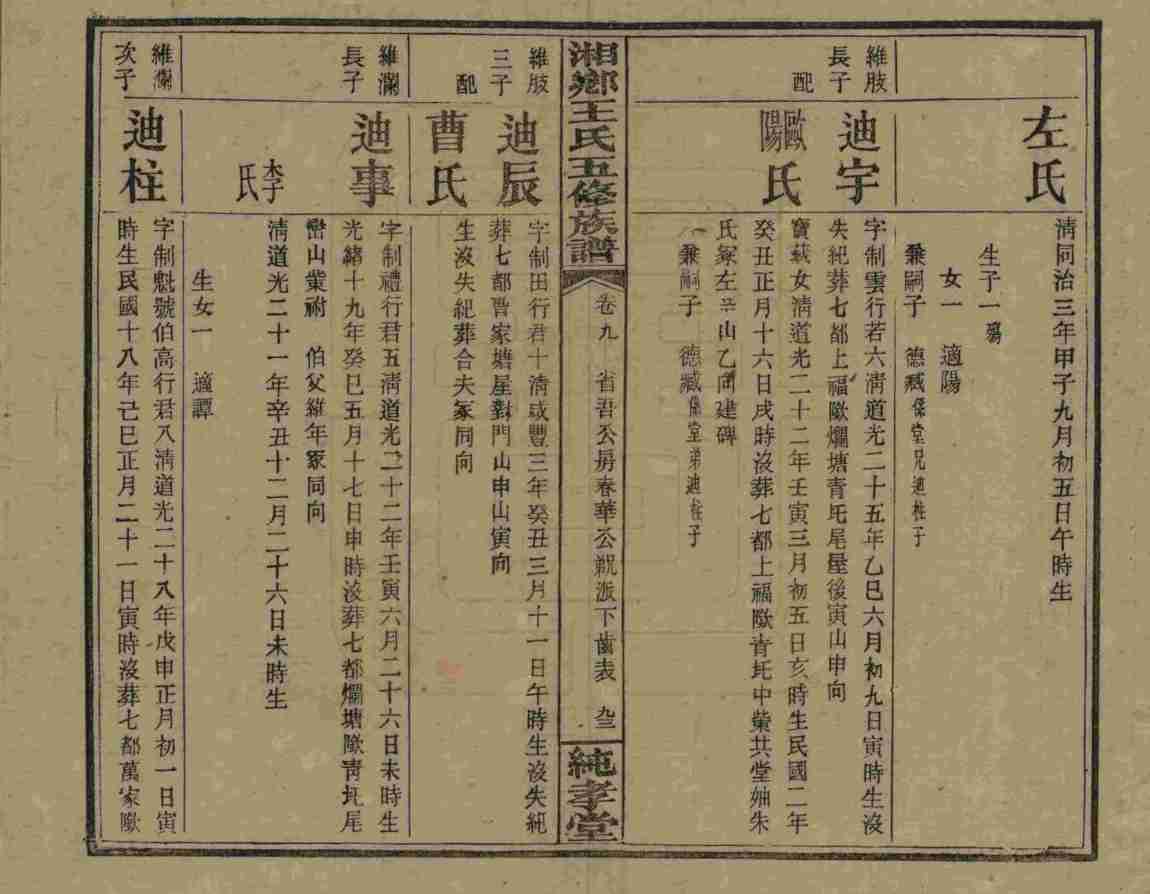 左氏
清同治三年甲子九月初五日午時生
生子一 殤
女一 適陽
兼嗣子 德臧保堂兄迪柱子
維肢長子
迪宇
字制雲行若六清道光二十五年乙巳六月初九日寅時生沒
失紀葬七都上福歐爛塘青坵尾屋後寅山申向
配
歐陽氏
寶萩女清道光二十二年壬寅三月初五日亥時生民國二年
癸丑正月十六日戌時沒葬七都上福歐青坵中塋共堂妯朱
氏冢左 山乙向建碑
兼嗣子 德臧係堂弟迪柱子
湘鄉王氏五修族譜
卷九 省吾公房春華公覲派下齒表 九三
純孝堂
維肢三子
迪辰
字制田行君十清咸豐三年癸丑三月十一日午時生沒失紀
葬七都曹家塘屋對門山申山寅向
配
曹氏
生沒失紀葬合夫冢同向
維瀾長子
迪事
字制禮行君五清道光二十二年壬寅六月二十六日未時生
光緒十九年癸巳五月十七日申時沒葬七都爛塘歐青坵尾
巒山業祔 伯父維年冢同向
李氏
清道光二十一年辛丑十二月二十六日未時生
生女一 適譚
維瀾次子
迪柱
字制魁號伯高行君八清道光二十八年戊申正月初一日寅
時生民國十八年己巳正月二十一日寅時沒葬七都萬家歐